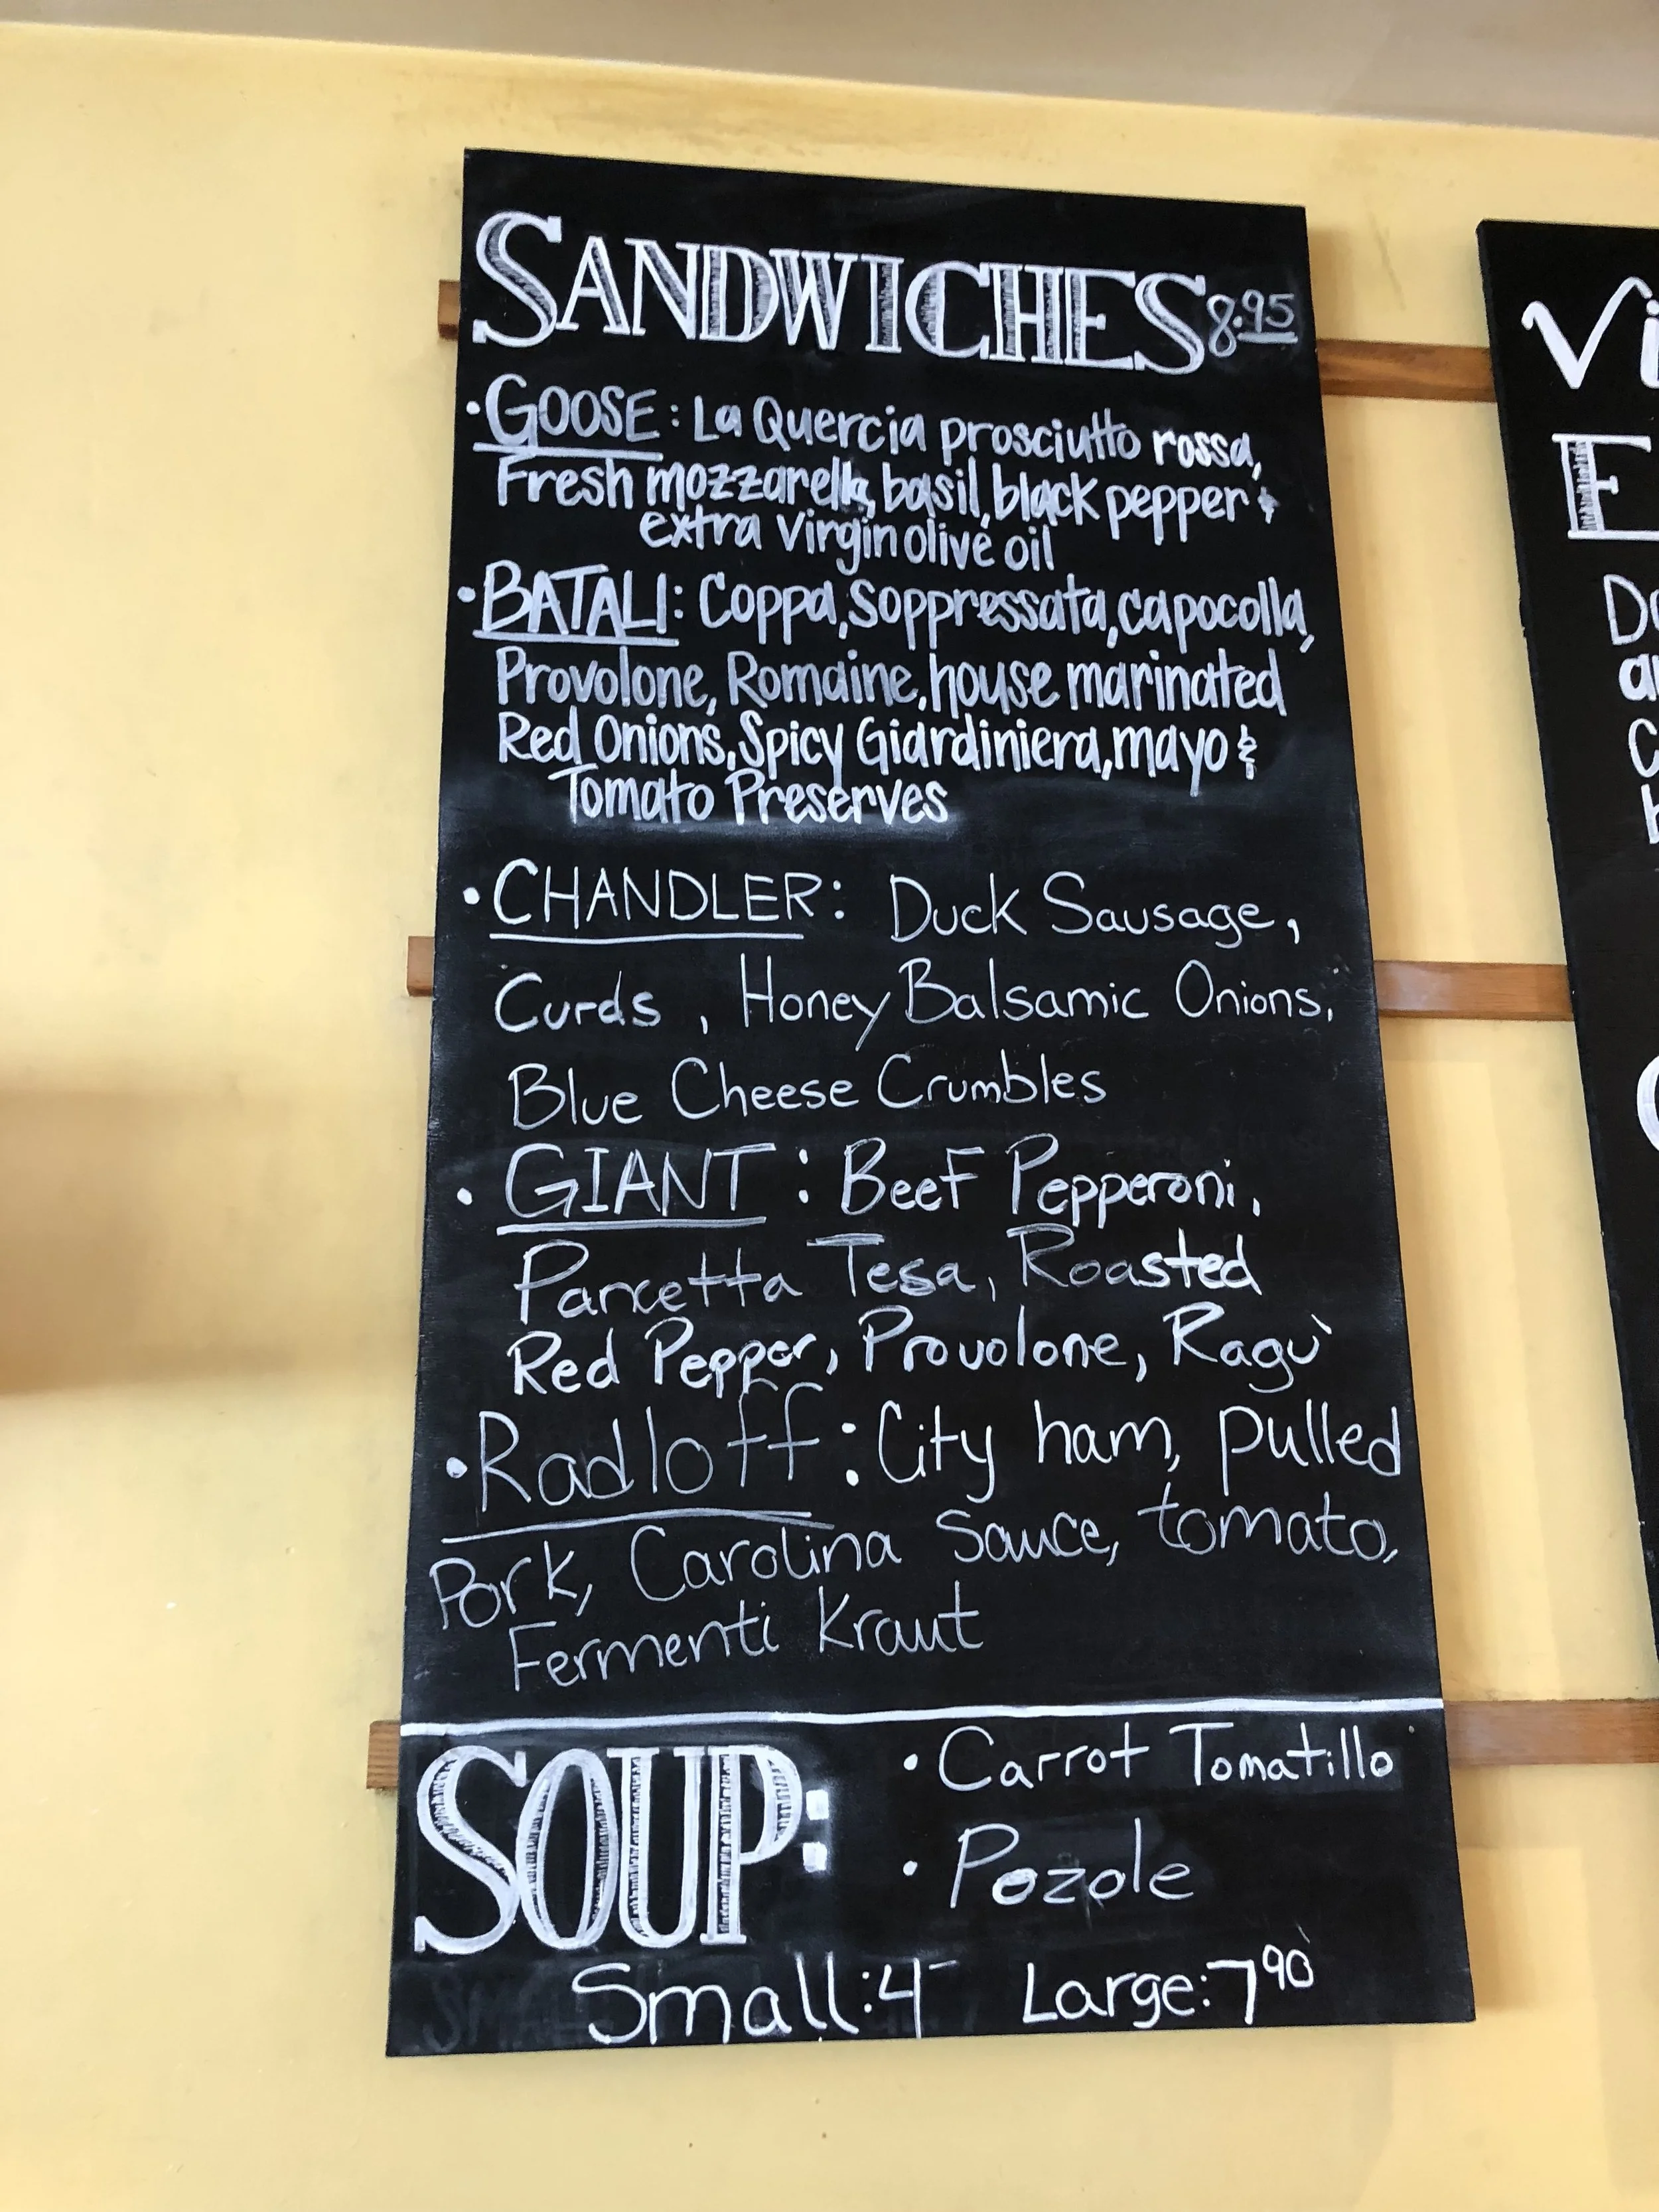 SANDWICHES 8.95
• GOOSE: La Quercia prosciutto rossa,
Fresh mozzarella, basil, black pepper &
extra virgin olive oil
• BATALI: Coppa, Soppressata, capocolla,
Provolone, Romaine, house marinated
Red Onions, Spicy Giardiniera, mayo &
Tomato Preserves
• CHANDLER: Duck Sausage,
Curds, Honey Balsamic Onions,
Blue Cheese Crumbles
• GIANT: Beef Pepperoni,
Pancetta Tesa, Roasted
Red Pepper, Provolone, Ragù
• Radloff: City ham, pulled
Pork, Carolina Sauce, tomato,
Fermenti Kraut
SOUP:
• Carrot Tomatillo
• Pozole
Small: 4- Large: 7 90
Vi
E